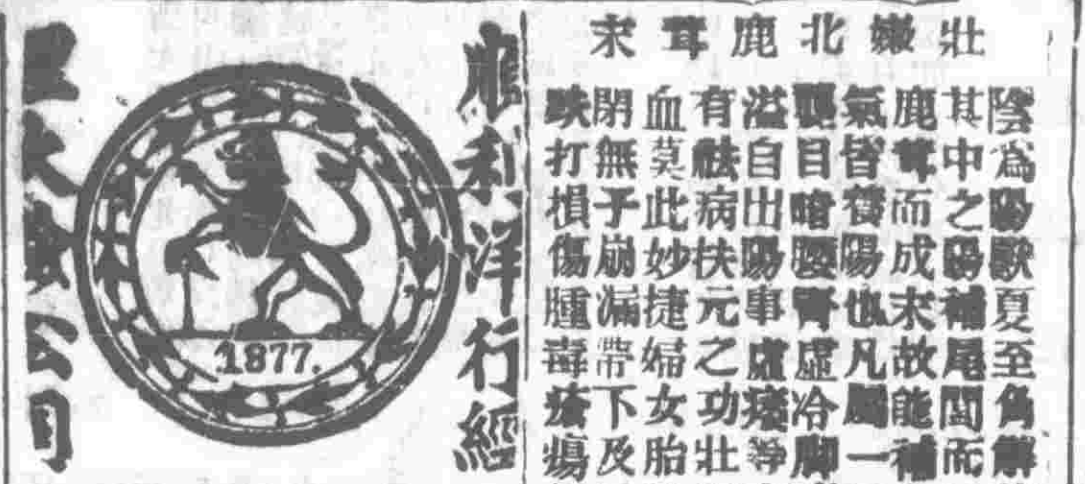 壯嫩北鹿茸末
陰為陽獸夏至角解
其中之陽補尾閭而
鹿茸而成末故能補
氣皆養陽也凡屬一
聾目暗腰腎虛冷脚
溢自出陽事虛痿等
有祛病扶元之功壯
血莫此妙捷婦女胎
閉無子崩漏帶下及
跌打損傷腫毒瘡瘍
利洋行經
1877.
公司